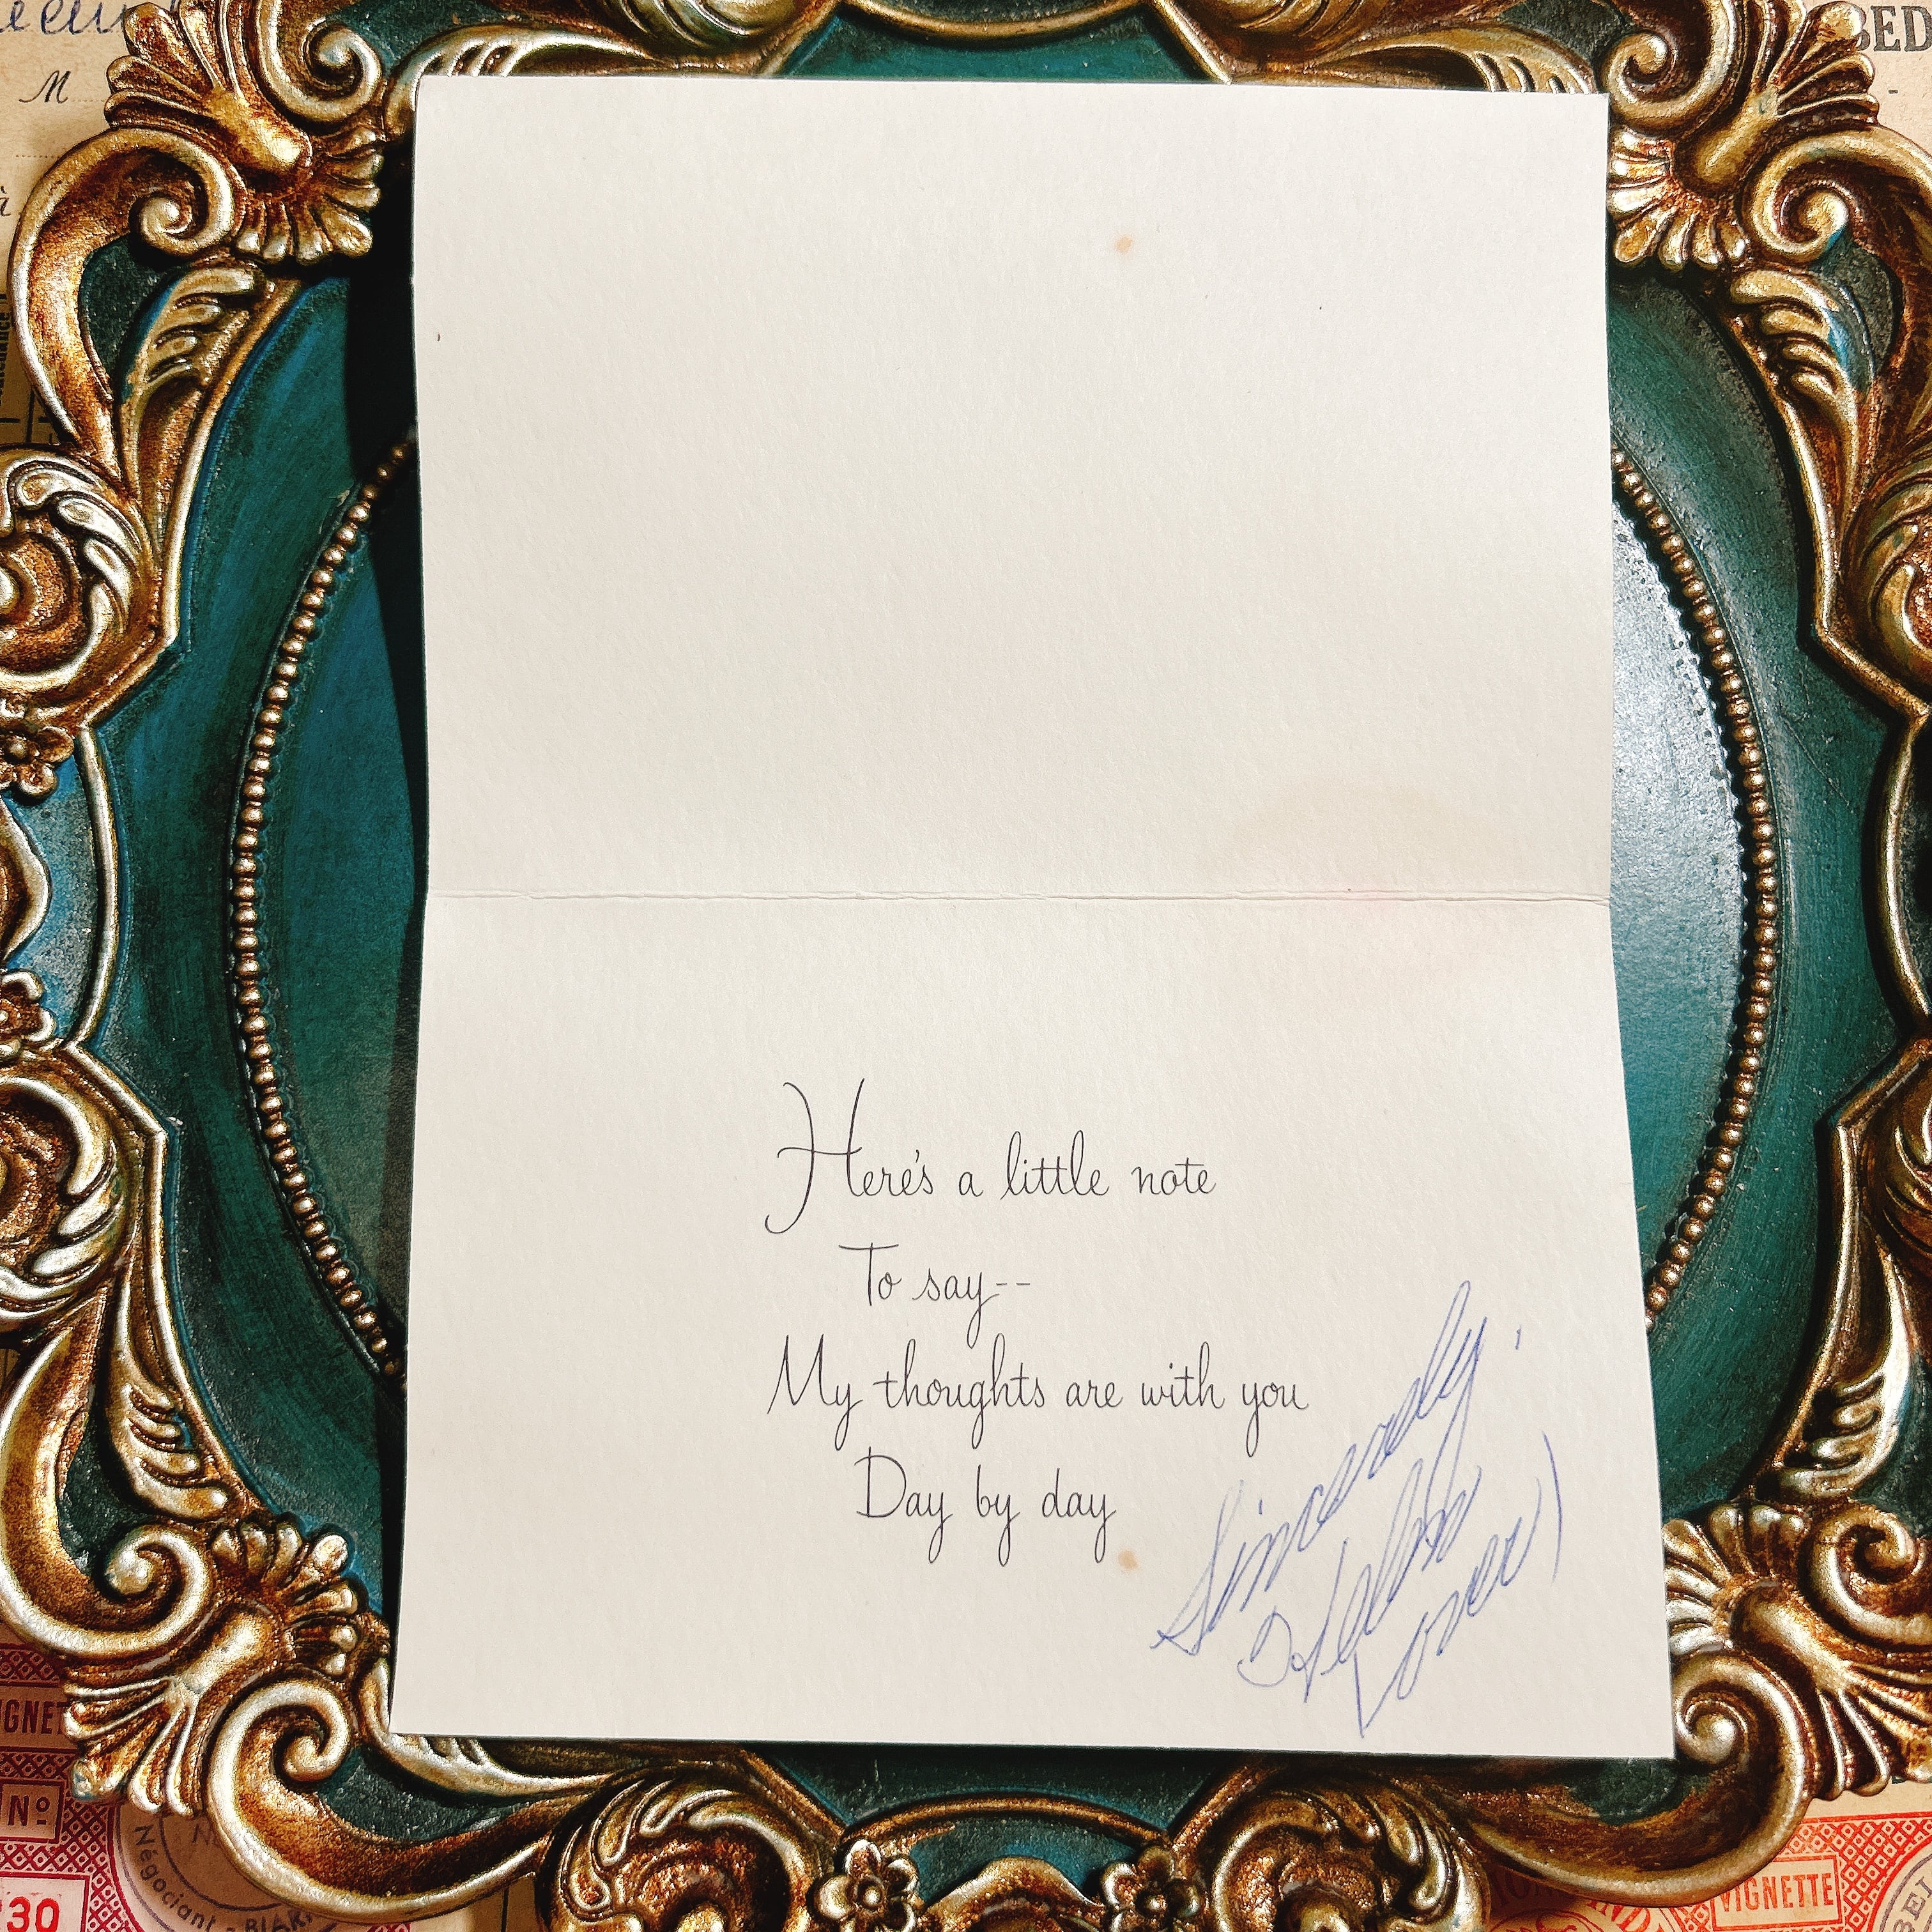 M
à
BED
Here's a little note
To say--
My thoughts are with you
Day by day
Sincerely.
(over)
Nº
30
Négociant - BIAR
VIGNETTE